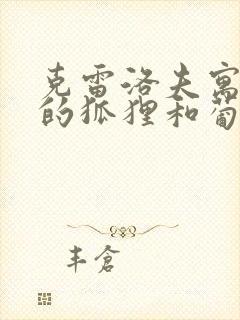 克雷洛夫寓
的狐狸和葡
丰仓